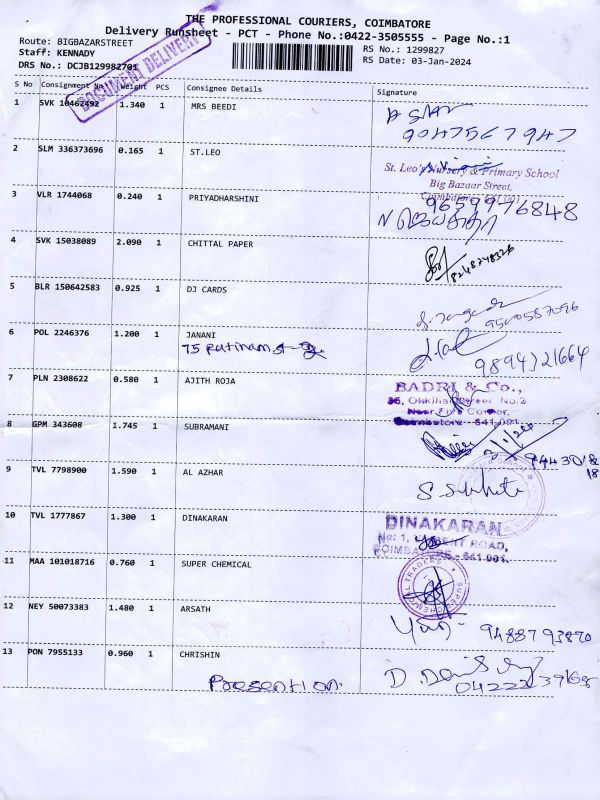 THE PROFESSIONAL COURIERS, COIMBATORE
Delivery Runsheet - PCT - Phone No.:0422-3505555 - Page No.:1
Route: BIGBAZARSTREET
RS No.: 1299827
Staff: KENNADY
RS Date: 03-Jan-2024
DRS No.: DCJB129982701
DOCUMENT DELIVERY
S No Consignment No Weight PCS Consignee Details Signature
1 SVK 10462492 1.340 1 MRS BEEDI
9047567947
2 SLM 336373696 0.165 1 ST.LEO
St. Leo's Nursery & Primary School
Big Bazaar Street,
Coimbatore - 641 001
3 VLR 1744068 0.240 1 PRIYADHARSHINI 9659976848
4 SVK 15038089 2.090 1 CHITTAL PAPER
5 BLR 150642583 0.925 1 DJ CARDS
6 POL 2246376 1.200 1 JANANI
75
9894321664
7 PLN 2308622 0.580 1 AJITH ROJA
BADRI & Co.,
Coimbatore - 641-001.
8 GPM 343608 1.745 1 SUBRAMANI
9 TVL 7798900 1.590 1 AL AZHAR
10 TVL 1777867 1.300 1 DINAKARAN
DINAKARAN
No: 1, ROAD,
COIMBATORE - 641-001.
11 MAA 101018716 0.760 1 SUPER CHEMICAL
SUPER CHEMICAL TRADERS
12 NEY 50073383 1.480 1 ARSATH
9488793870
13 PON 7955133 0.960 1 CHRISHIN